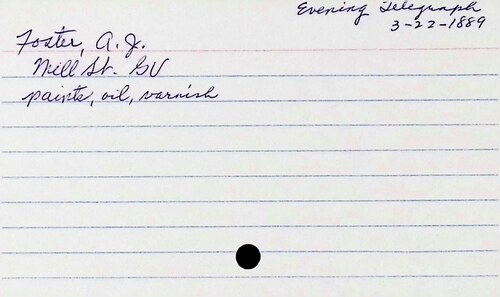 Evening Telegraph
3-22-1889
Foster, A. J.
Mill St. GV
paints, oil, varnish